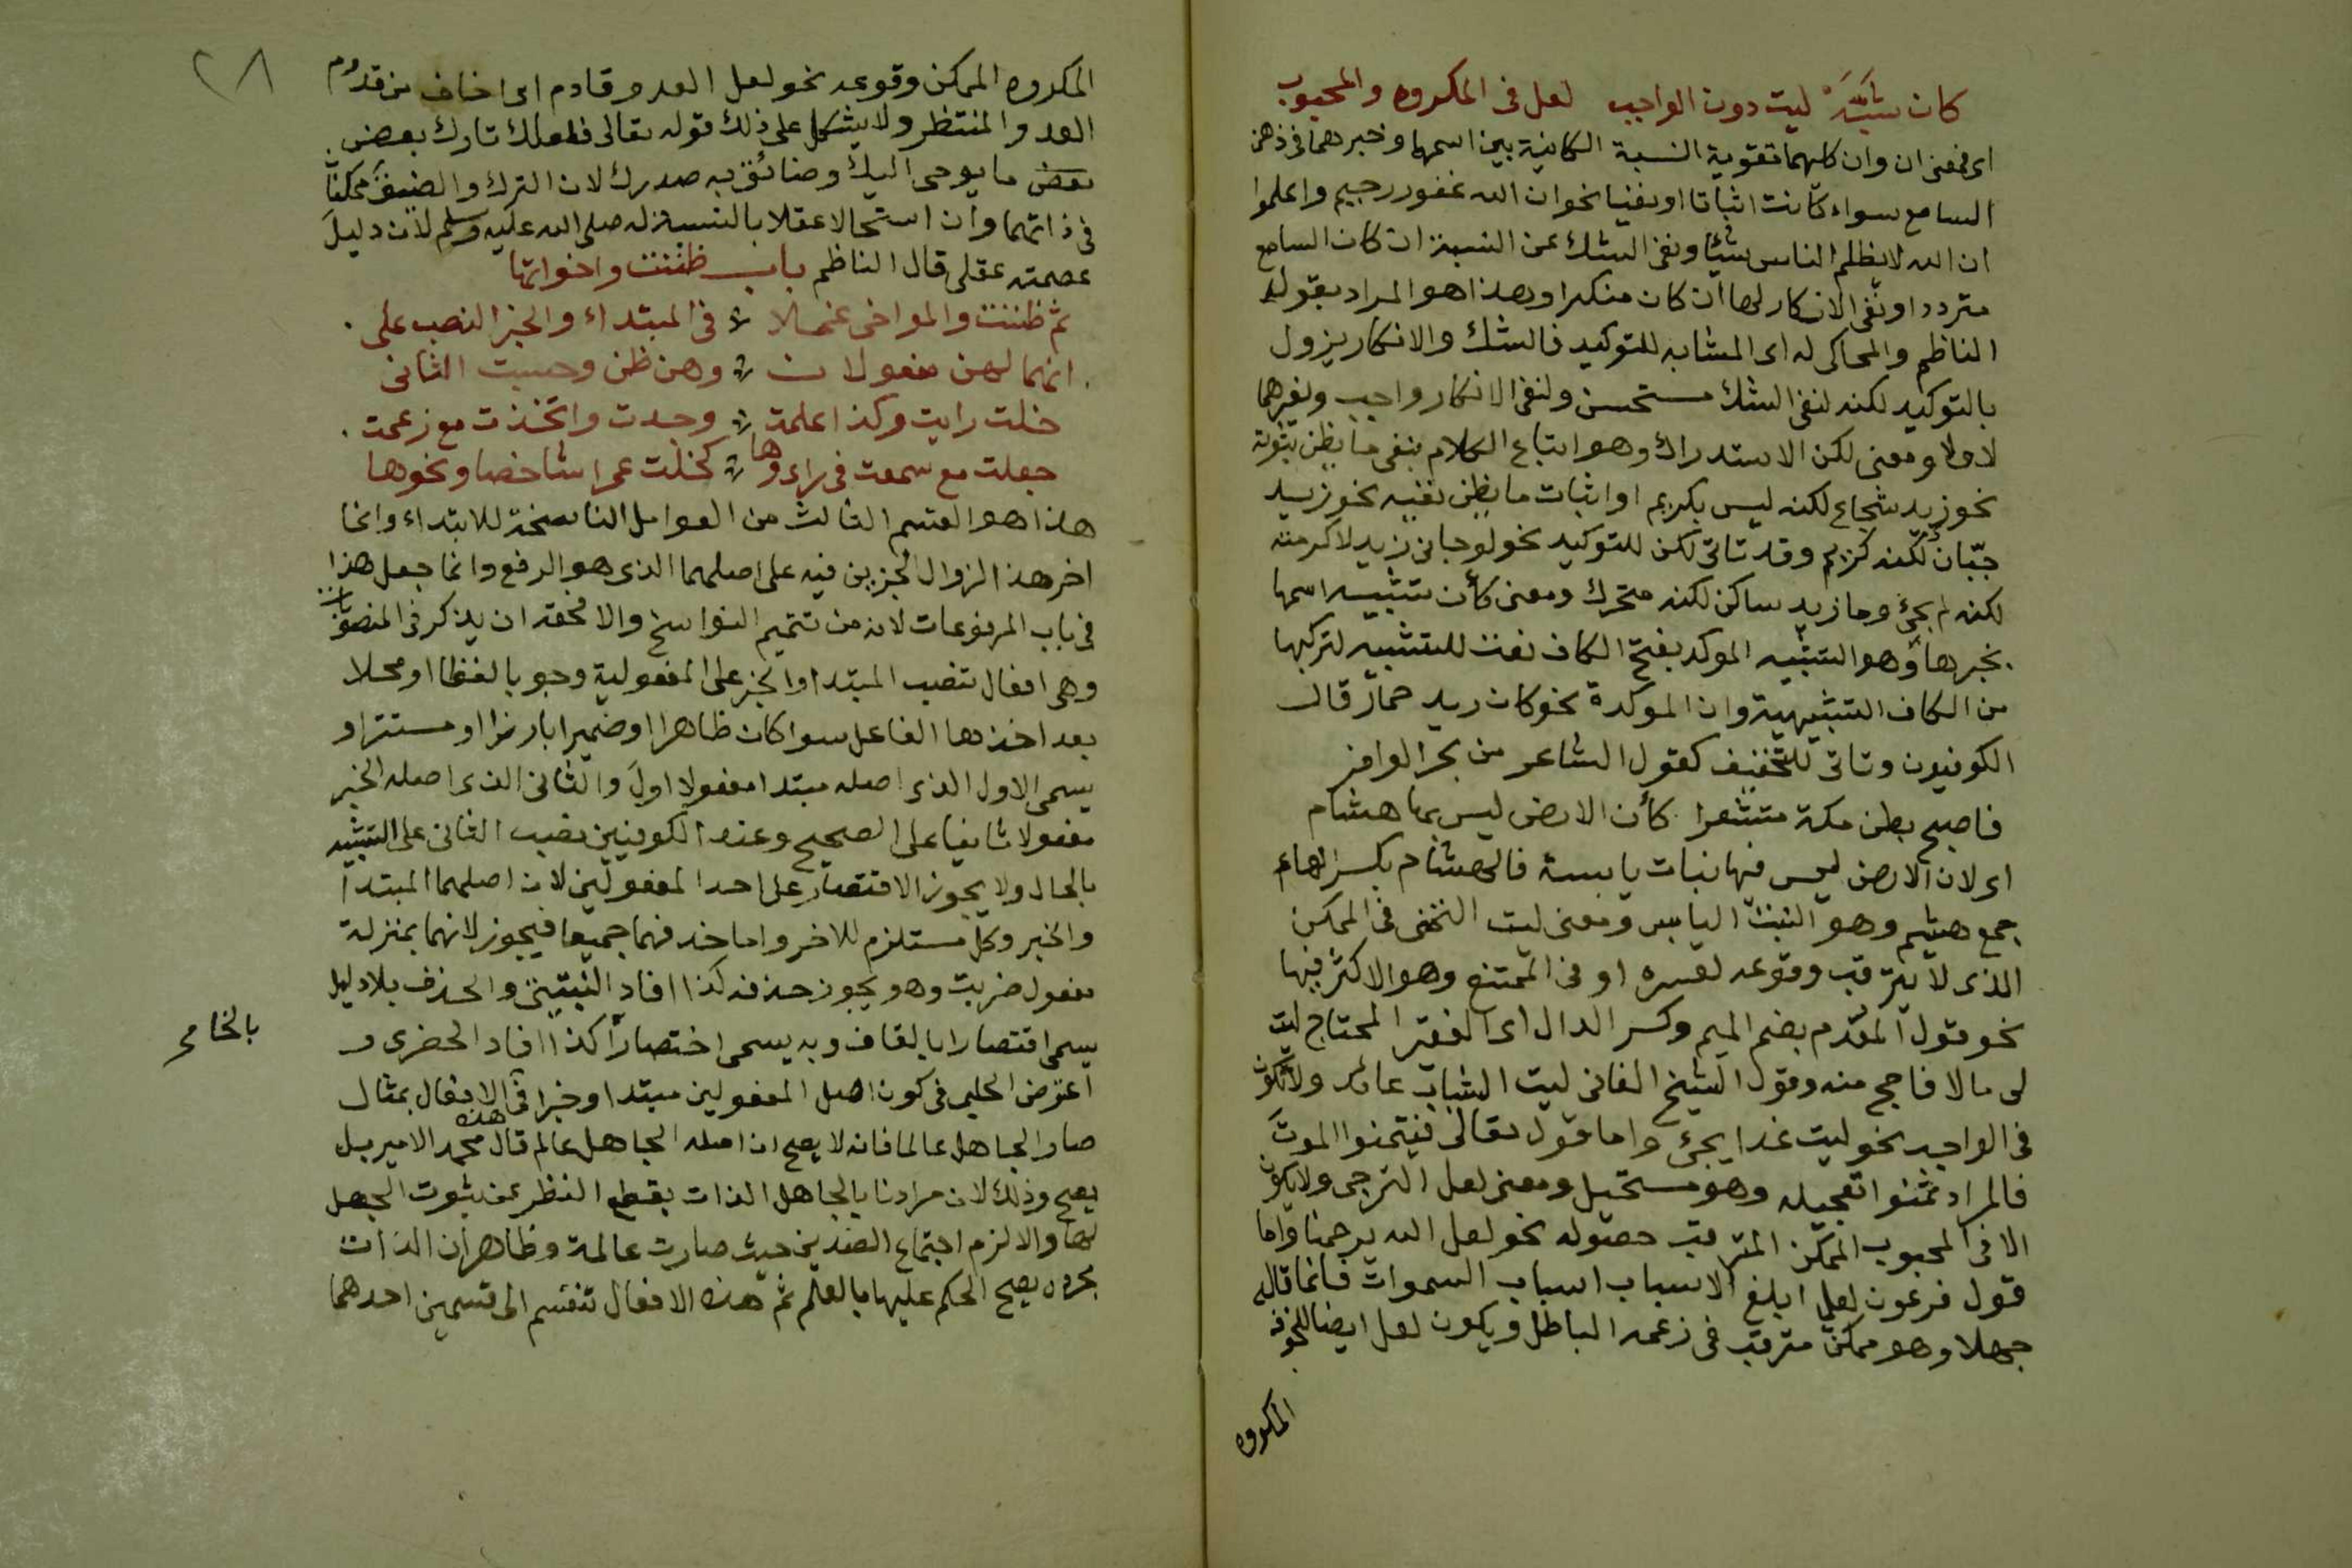 كان شبه ليت دون الواجب لعل فى المكروه والمحبوب
اى فمعنى ان وان كلهما تقوية النسبة الكائنة بين اسمها وخبرهما فى ذهن
السامع سواء كانت اثباتا او نفيا نحو ان الله غفور رحيم واعلموا
ان الله لا يظلم الناس شيئا ونفى الشك عن النسبة ان كان السامع
متردد او نفى الانكار لها ان كان منكرا وهذا هو المراد بقول
الناظم والمحاكى له اى المشابه للتوكيد فالشك والانكار يزول
بالتوكيد لكنه لنفى الشك مستحسن ولنفى الانكار واجب ولغيرهما
لا ولا ومعنى لكن الاستدراك وهو اتباع الكلام بنفى ما يظن ثبوته
نحو زيد شجاع لكنه ليس بكريم او اثبات ما يظن نفيه نحو زيد
جبان لكنه كريم وقد تاتى لكن للتوكيد نحو لو جانى زيد لاكرمته
لكنه لم يجئ وما زيد ساكن لكنه متحرك ومعنى كأن تشبيه اسمها
بخبرها وهو التشبيه الموكد بفتح الكاف نعت للتشبيه لتركبها
من الكاف التشبيهية وان الموكدة نحو كان زيد حمار قال
الكوفيون وتاتى للتخفيف كقول الشاعر من بحر الوافر
فاصبح بطن مكة مقشعرا كأن الارض ليس بها هشام
اى لان الارض ليس فيها نبات يابسة فالهشام بكسر الهاء
جمع هشيم وهو النبت اليابس ومعنى ليت التمنى فى الممكن
الذى لا يترقب وقوعه لعسره او فى الممتنع وهو الاكثر فيها
نحو قول المقدم بضم الميم وكسر الدال اى الفقير المحتاج ليت
لى مالا فاحج منه وقول الشيخ الفانى ليت الشباب عائد ولا تكون
فى الواجب نحو ليت غدا يجئ واما قول تعالى فتمنوا الموت
فالمراد تمنوا تعجيله وهو مستحيل ومعنى لعل الترجى ولا يكون
الا فى المحبوب الممكن المترقب حصوله نحو لعل الله يرحمنا واما
قول فرعون لعلى ابلغ الاسباب اسباب السموات فانما قاله
جهلا وهو ممكن مترقب فى زعمه الباطل ويكون لعل ايضا للخوف
المكروه
٢٨
المكروه الممكن وقوعه نحو لعل العدو قادم اى اخاف من قدوم
العدو المنتظر ولا يشكل على ذلك قوله تعالى فلعلك تارك بعض
بعض ما يوحى اليك وضائق به صدرك لان الترك والضيق ممكنا
فى ذاتهما وان استحالا عقلا بالنسبة له صلى الله عليه وسلم لان دليل
عصمته عقلى قال الناظم باب ظننت واخواتها
ثم ظننت والمواخى عملا فى المبتداء والخبر النصب على
انهما لهن مفعولان وهن ظن وحسبت الثانى
خلت رايت وكذا علمت وجدت واتخذت مع زعمت
جعلت مع سمعت فى راءوها كخلت عمرا شاخصا ونحوها
هذا هو القسم الثالث من العوامل الناسخة للابتداء وانما
اخر هذا لزوال الجزين فيه على اصلهما الذى هو الرفع وانما جعل هذا
فى باب المرفوعات لانه من تتميم النواسخ والا فحقه ان يذكر فى المنصوبات
وهى افعال تنصب المبتدا والخبر على المفعولية وجوبا لفظا او محلا
بعد اخذها الفاعل سوا كان ظاهرا او ضميرا بارزا او مستترا و
يسمى الاول الذى اصله مبتدا مفعولا اول والثانى الذى اصله الخبر
مفعولا ثانيا على الصحيح وعند الكوفيين نصب الثانى على التشبيه
بالحال ولا يجوز الاقتصار على احد المفعولين لان اصلهما المبتدا
والخبر وكل مستلزم للاخر واما حذفهما جميعا فيجوز لانهما بمنزلة
مفعول ضربت وهو يجوز حذفه كذا افاد النبتيتى والحذف بلا دليل
يسمى اقتصارا بالقاف وبه يسمى اختصارا كذا افاد الخضرى و
بالخامر
اعترض الحلبى فى كون اصل المفعولين مبتدا وخبرا فى هذه الافعال بمثال
صار الجاهل عالما فانه لا يصح ان اصله الجاهل عالم قال محمد الامير بل
يصح وذلك لان مرادنا بالجاهل الذات بقطع النظر عن ثبوت الجهل
لها والا لزم اجتماع الضدين حيث صارت عالمة وظاهر ان الذات
مجرده يصح الحكم عليها بالعلم ثم هذه الافعال تنقسم الى قسمين احدهما